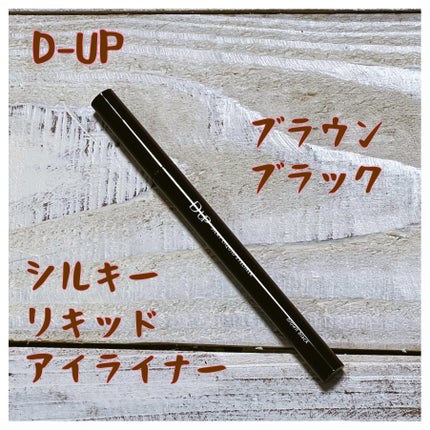 D-UP
ブラウン
ブラック
シルキー
リキッド
アイライナー
D-UP